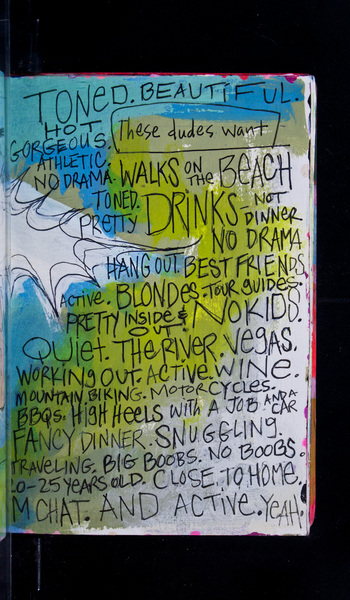 TONED. BEAUTIFUL.
HOT. These dudes want
GORGEOUS.
ATHLETIC.
NO DRAMA. WALKS ON THE BEACH
TONED. DRINKS. NOT DINNER
PRETTY
NO DRAMA
HANG OUT. BEST FRIENDS
ACTIVE. BLONDES. TOUR GUIDES.
PRETTY INSIDE & OUT. NO KIDS.
QUIET. THE RIVER. VEGAS.
WORKING OUT. ACTIVE. WINE.
MOUNTAIN BIKING. MOTORCYCLES.
BBQS. HIGH HEELS WITH A JOB AND A CAR
FANCY DINNER. SNUGGLING.
TRAVELING. BIG BOOBS. NO BOOBS.
0-25 YEARS OLD. CLOSE TO HOME.
M CHAT. AND ACTIVE. YEAH.